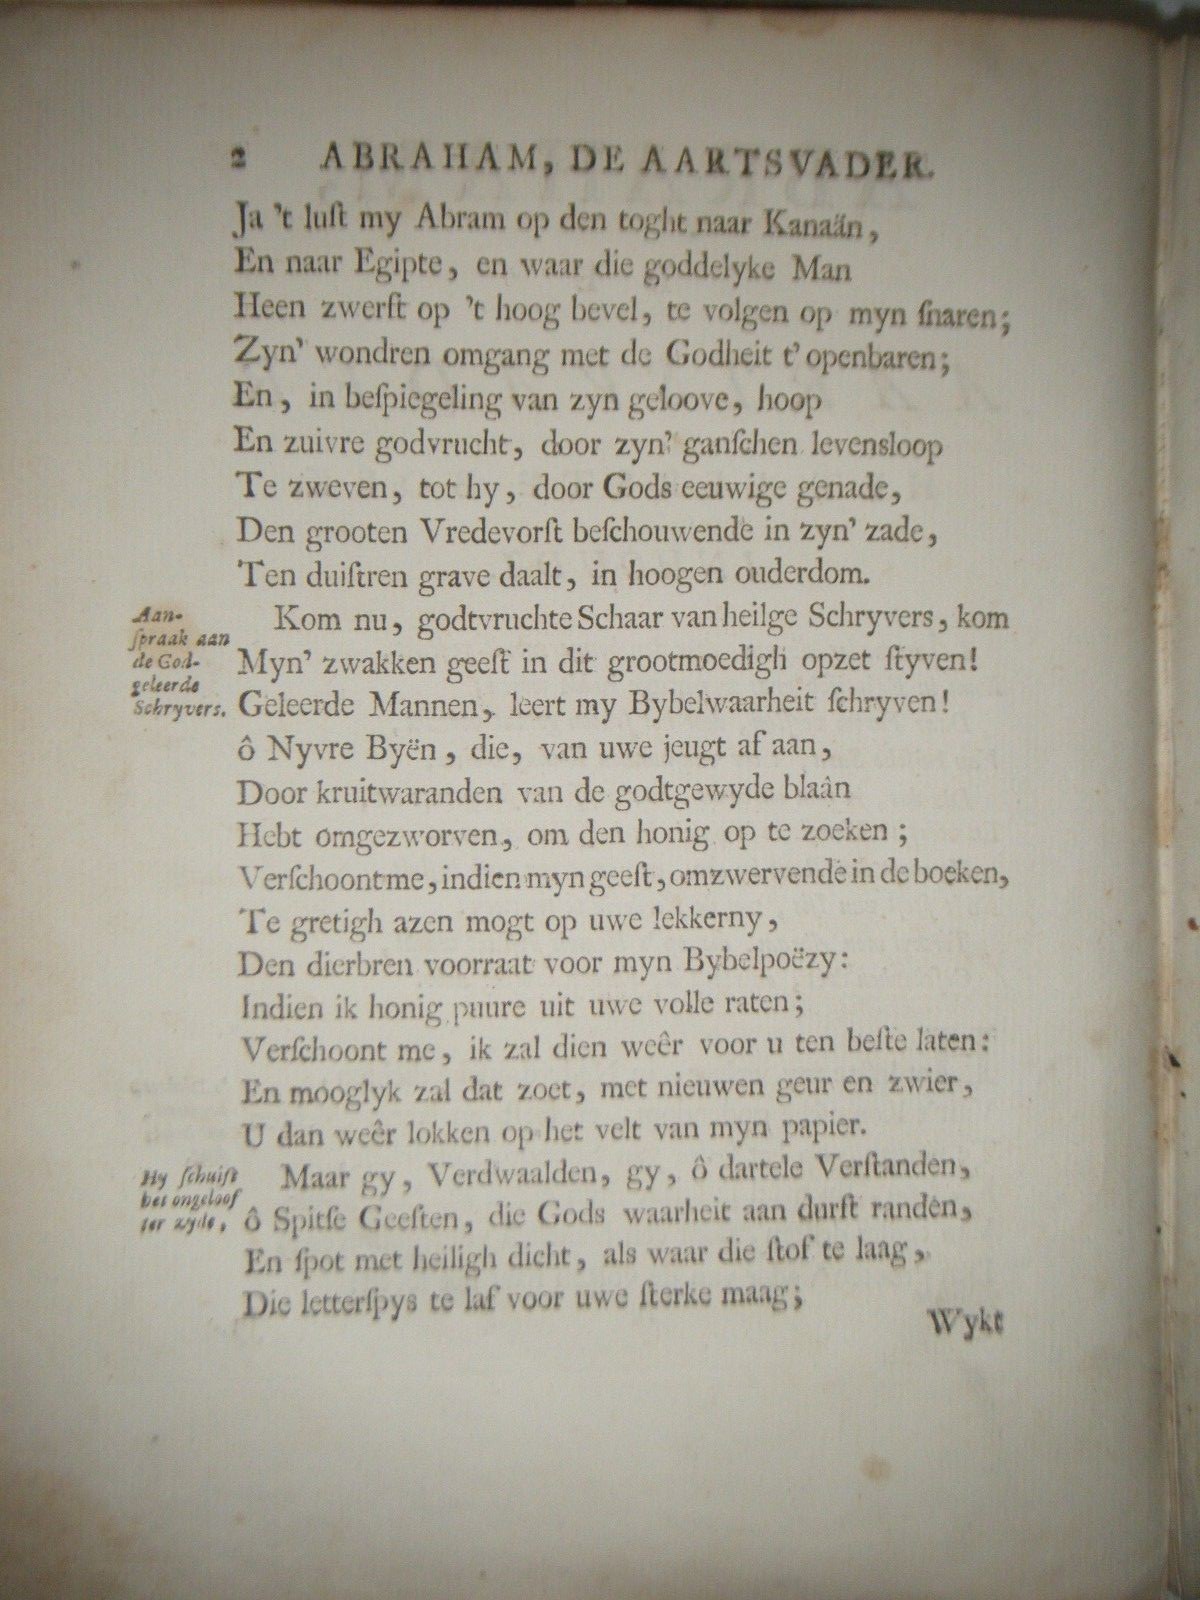 2 ABRAHAM, DE AARTSVADER.
Ja 't luſt my Abram op den toght naar Kanaän,
En naar Egipte, en waar die goddelyke Man
Heen zwerſt op 't hoog bevel, te volgen op myn ſnaren;
Zyn' wondren omgang met de Godheit t' openbaren;
En, in beſpiegeling van zyn geloove, hoop
En zuivre godvrucht, door zyn' ganſchen levensloop
Te zweven, tot hy, door Gods eeuwige genade,
Den grooten Vredevorſt beſchouwende in zyn' zade,
Ten duiſtren grave daalt, in hoogen ouderdom.
Aan-
ſpraak aan
de God-
geleerde
Schryvers.
Kom nu, godtvruchte Schaar van heilge Schryvers, kom
Myn' zwakken geeſt in dit grootmoedigh opzet ſtyven!
Geleerde Mannen, leert my Bybelwaarheit ſchryven!
ô Nyvre Byën, die, van uwe jeugt af aan,
Door kruitwaranden van de godtgewyde blaân
Hebt omgezworven, om den honig op te zoeken;
Verſchoont me, indien myn geeſt, omzwervende in de boeken,
Te gretigh azen mogt op uwe lekkerny,
Den dierbren voorraat voor myn Bybelpoëzy:
Indien ik honig puure uit uwe volle raten;
Verſchoont me, ik zal dien weêr voor u ten beſte laten:
En mooglyk zal dat zoet, met nieuwen geur en zwier,
U dan weêr lokken op het velt van myn papier.
Hy ſchuift
het ongeloof
ter zyde.
Maar gy, Verdwaalden, gy, ô dartele Verſtanden,
ô Spitſe Geeſten, die Gods waarheit aan durſt randen,
En ſpot met heiligh dicht, als waar die ſtof te laag,
Die letterſpys te laf voor uwe ſterke maag;
Wykt